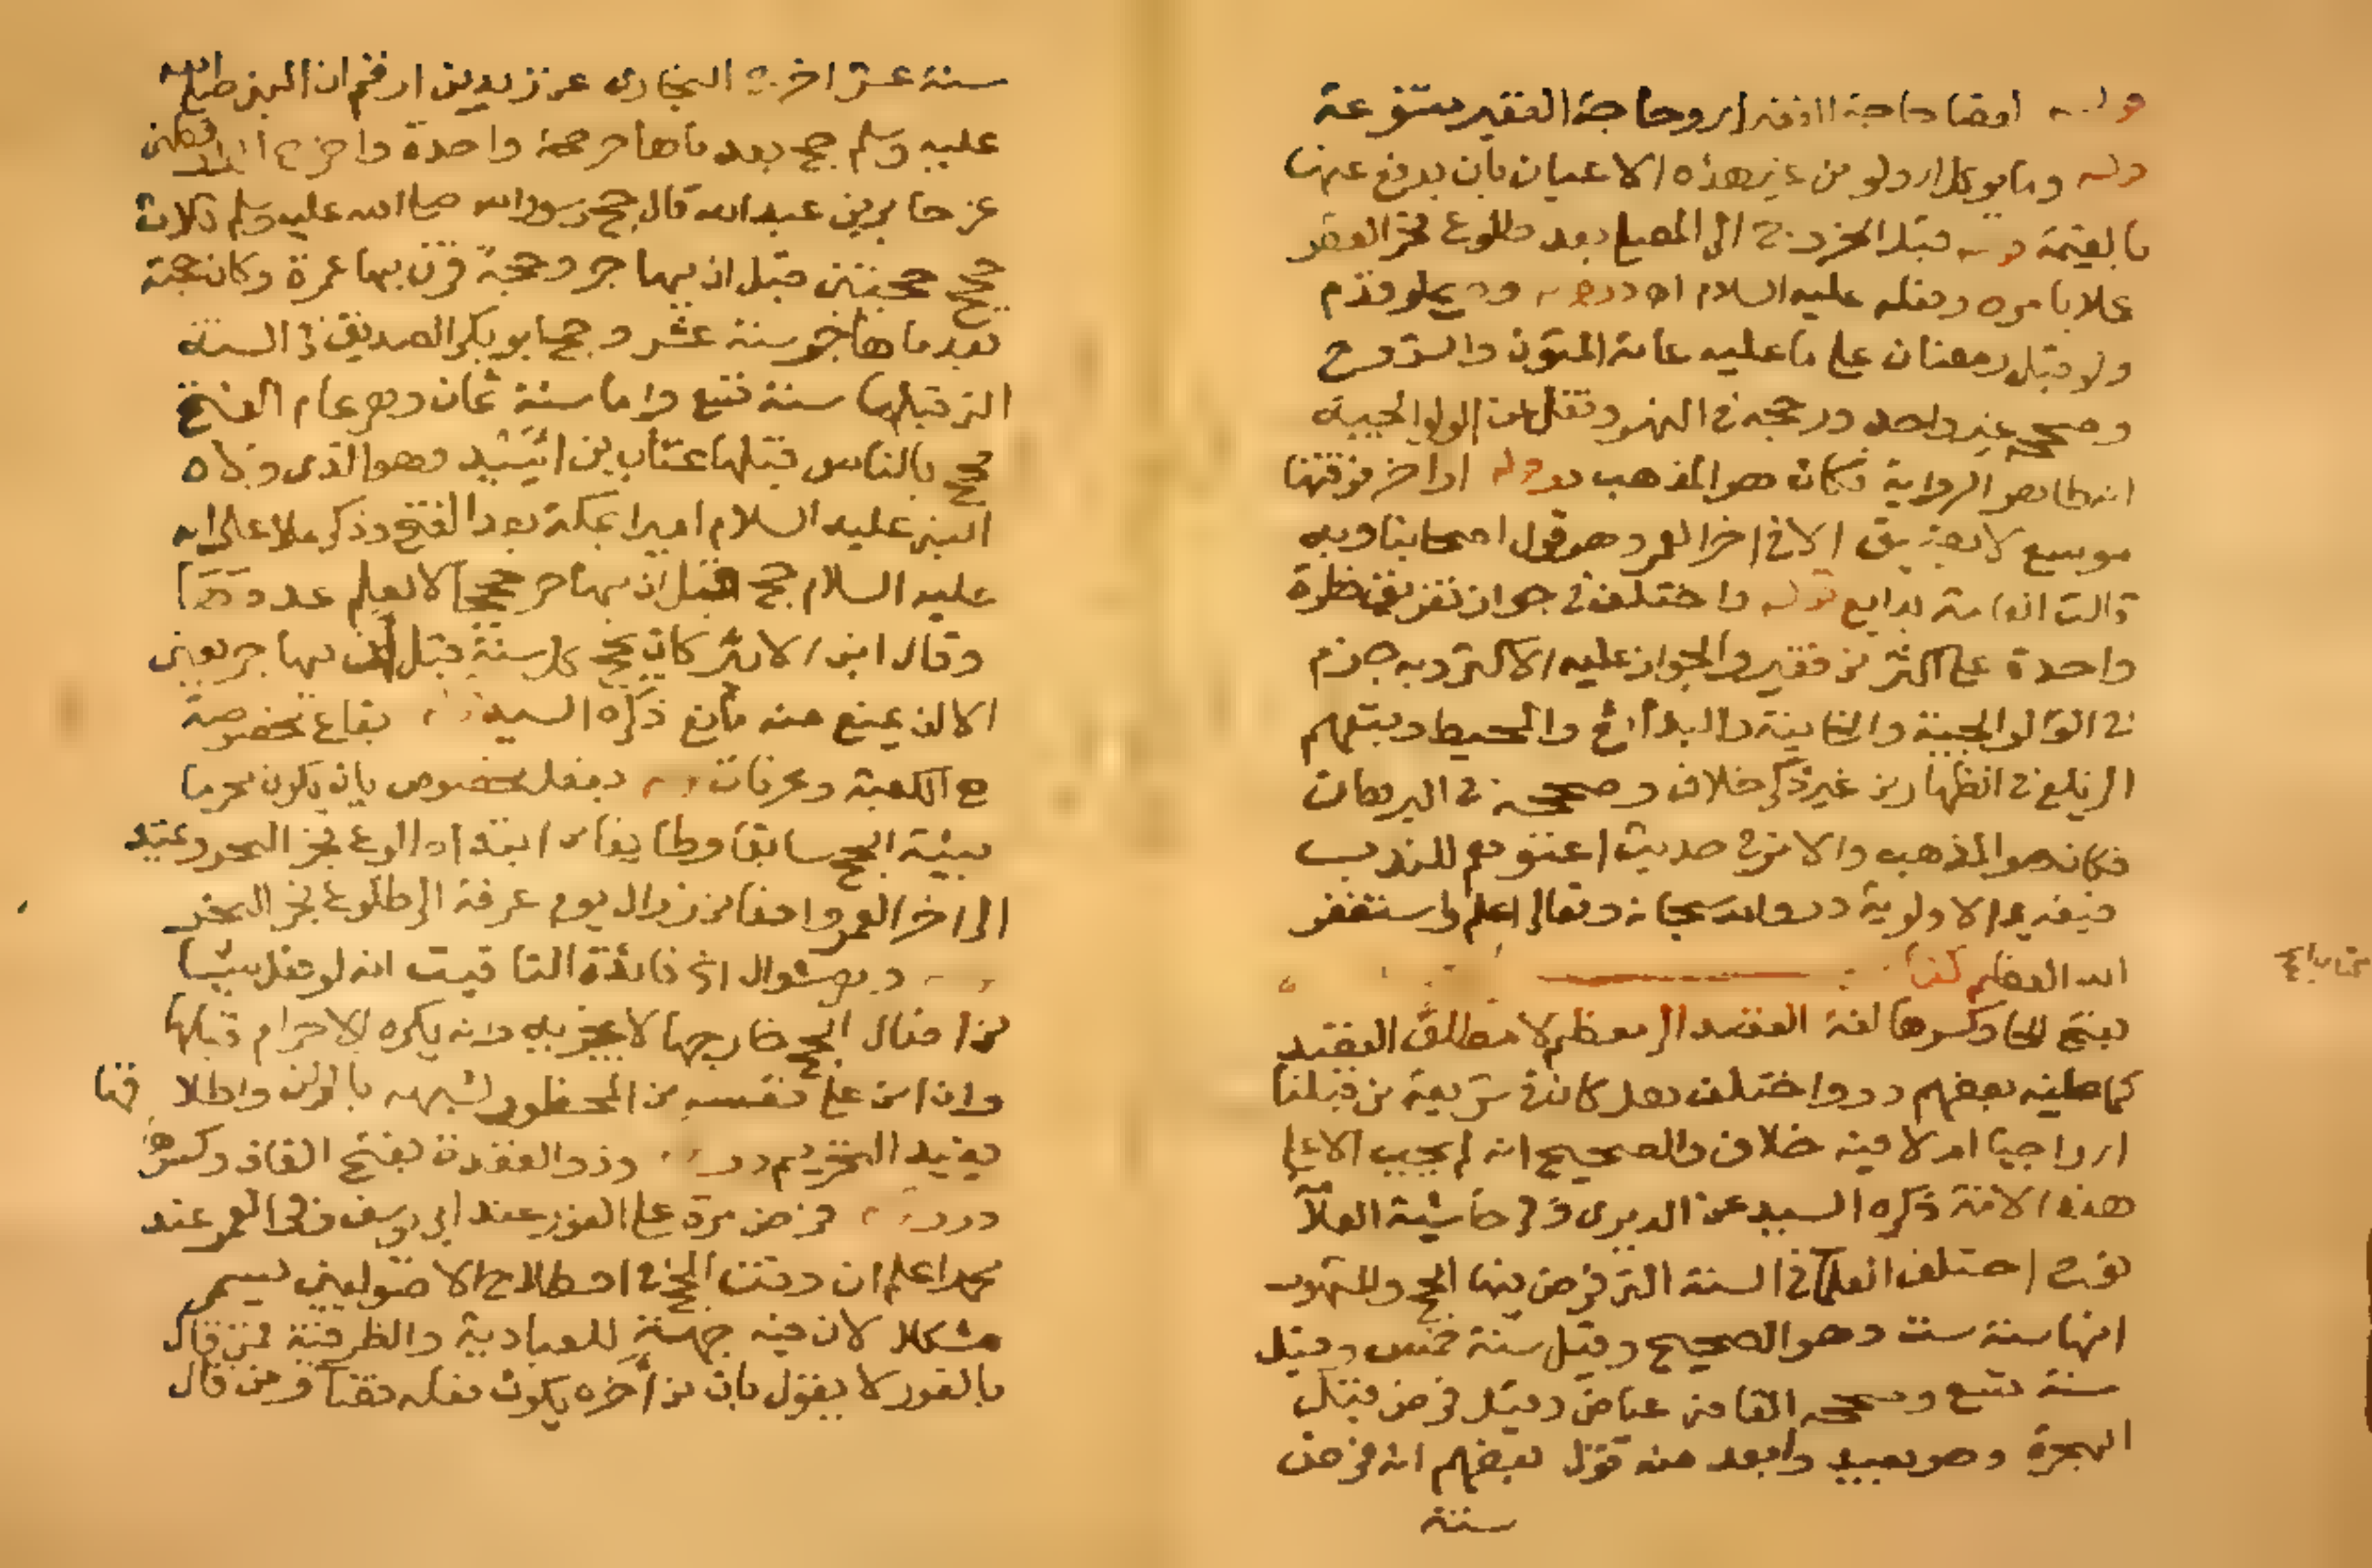 قوله اقضا حاجة اذ وحاجة الفقير متنوعة
قوله وما يوكل ولو من غير هذه الاعيان بان يدفع عنها
بالقيمة قوله قبل الخروج الى المصلى بعد طلوع فجر الفطر
عملا بامره وفعله عليه السلام اه درر وصح لو قدم
ولو قبل رمضان على ما عليه عامة المتون والشروح
وصححه غير واحد ورجحه في النهر ونقل عن الولوالجية
انه ظاهر الرواية فكان هو المذهب در قوله
موسع لا يضيق الا في اخر العمر وهو قول اصحابنا وبه
قالت العامة بدايع قوله واختلف في جواز تفريق فطرة
واحدة على اكثر من فقير والجواز عليه الاكثر وبه جزم
في الولوالجية والخانية والبدائع والمحيط وتبعهم
الزيلعي في الظهار من غير ذكر خلاف وصححه في البرهان
فكان هو المذهب والامر في حديث اغنوهم للندب
فيفيد الاولوية در والله سبحانه وتعالى اعلم واستغفر
الله العظيم كتاب
بفتح الحا وكسرها لغة القصد الى معظم لا مطلق القصد
كما ظنه بعضهم در واختلف هل كان في شريعة من قبلنا
اي واجبا ام لا فيه خلاف والصحيح انه لم يجب الا على
هذه الامة ذكره السيد عن الديري وفي حاشية العلآ
نوح اختلف العلما في السنة التي فرض فيها الحج والمشهور
انها سنة ست وهو الصحيح وقيل سنة خمس وقيل
سنة تسع وصححه القاضي عياض وقيل فرض قبل
الهجرة وهو بعيد وابعد منه قول بعضهم انه فرض
سنة
سنة عشر اخرج البخاري عن زيد بن ارقم ان النبي صلى الله
عليه وسلم حج بعد ما هاجر حجة واحدة واخرج الدارقطني
عن جابر بن عبد الله قال حج رسول الله صلى الله عليه وسلم ثلاث
حجج حجتين قبل ان يهاجر وحجة قرن بها عمرة وكان حجة
بعد ما هاجر سنة عشر وحج ابو بكر الصديق في السنة
التي قبلها سنة تسع واما سنة ثمان وهو عام الفتح
حج بالناس قبلها عتاب بن اسيد وهو الذي ولاه
النبي عليه السلام اميرا بمكة بعد الفتح وذكر ملا علي انه
عليه السلام حج قبل ان يهاجر حججا لا يعلم عددها
وقال ابن الاثير كان يحج كل سنة قبل ان يهاجر يعني
الا ان يمنع منه مانع ذكره السيد قوله بقاع مخصوصة
هي الكعبة وعرفات قوله بفعل مخصوص بان يكون محرما
بنية الحج سابقا وطايفا من ابتداء طلوع فجر النحر ويمتد
الى اخر العمر واقفا من زوال يوم عرفة الى طلوع فجر النحر
قوله وهي شوال الخ فائدة التاقيت انه لو فعل شيئا
من افعال الحج خارجها لا يجزيه وانه يكره الاحرام قبلها
وان امن على نفسه من المحظور لشبهه بالركن واطلاقها
يفيد التحريم در قوله وذو القعدة بفتح القاف وكسرها
درر قوله فرض مرة على الفور عند ابي يوسف وفي العمر عند
محمد اعلم ان وقت الحج في اصطلاح الاصوليين يسمى
مشكلا لان فيه جهتي المعيارية والظرفية فمن قال
بالفور لا يقول بان من اخره يكون فعله قضآ ومن قال